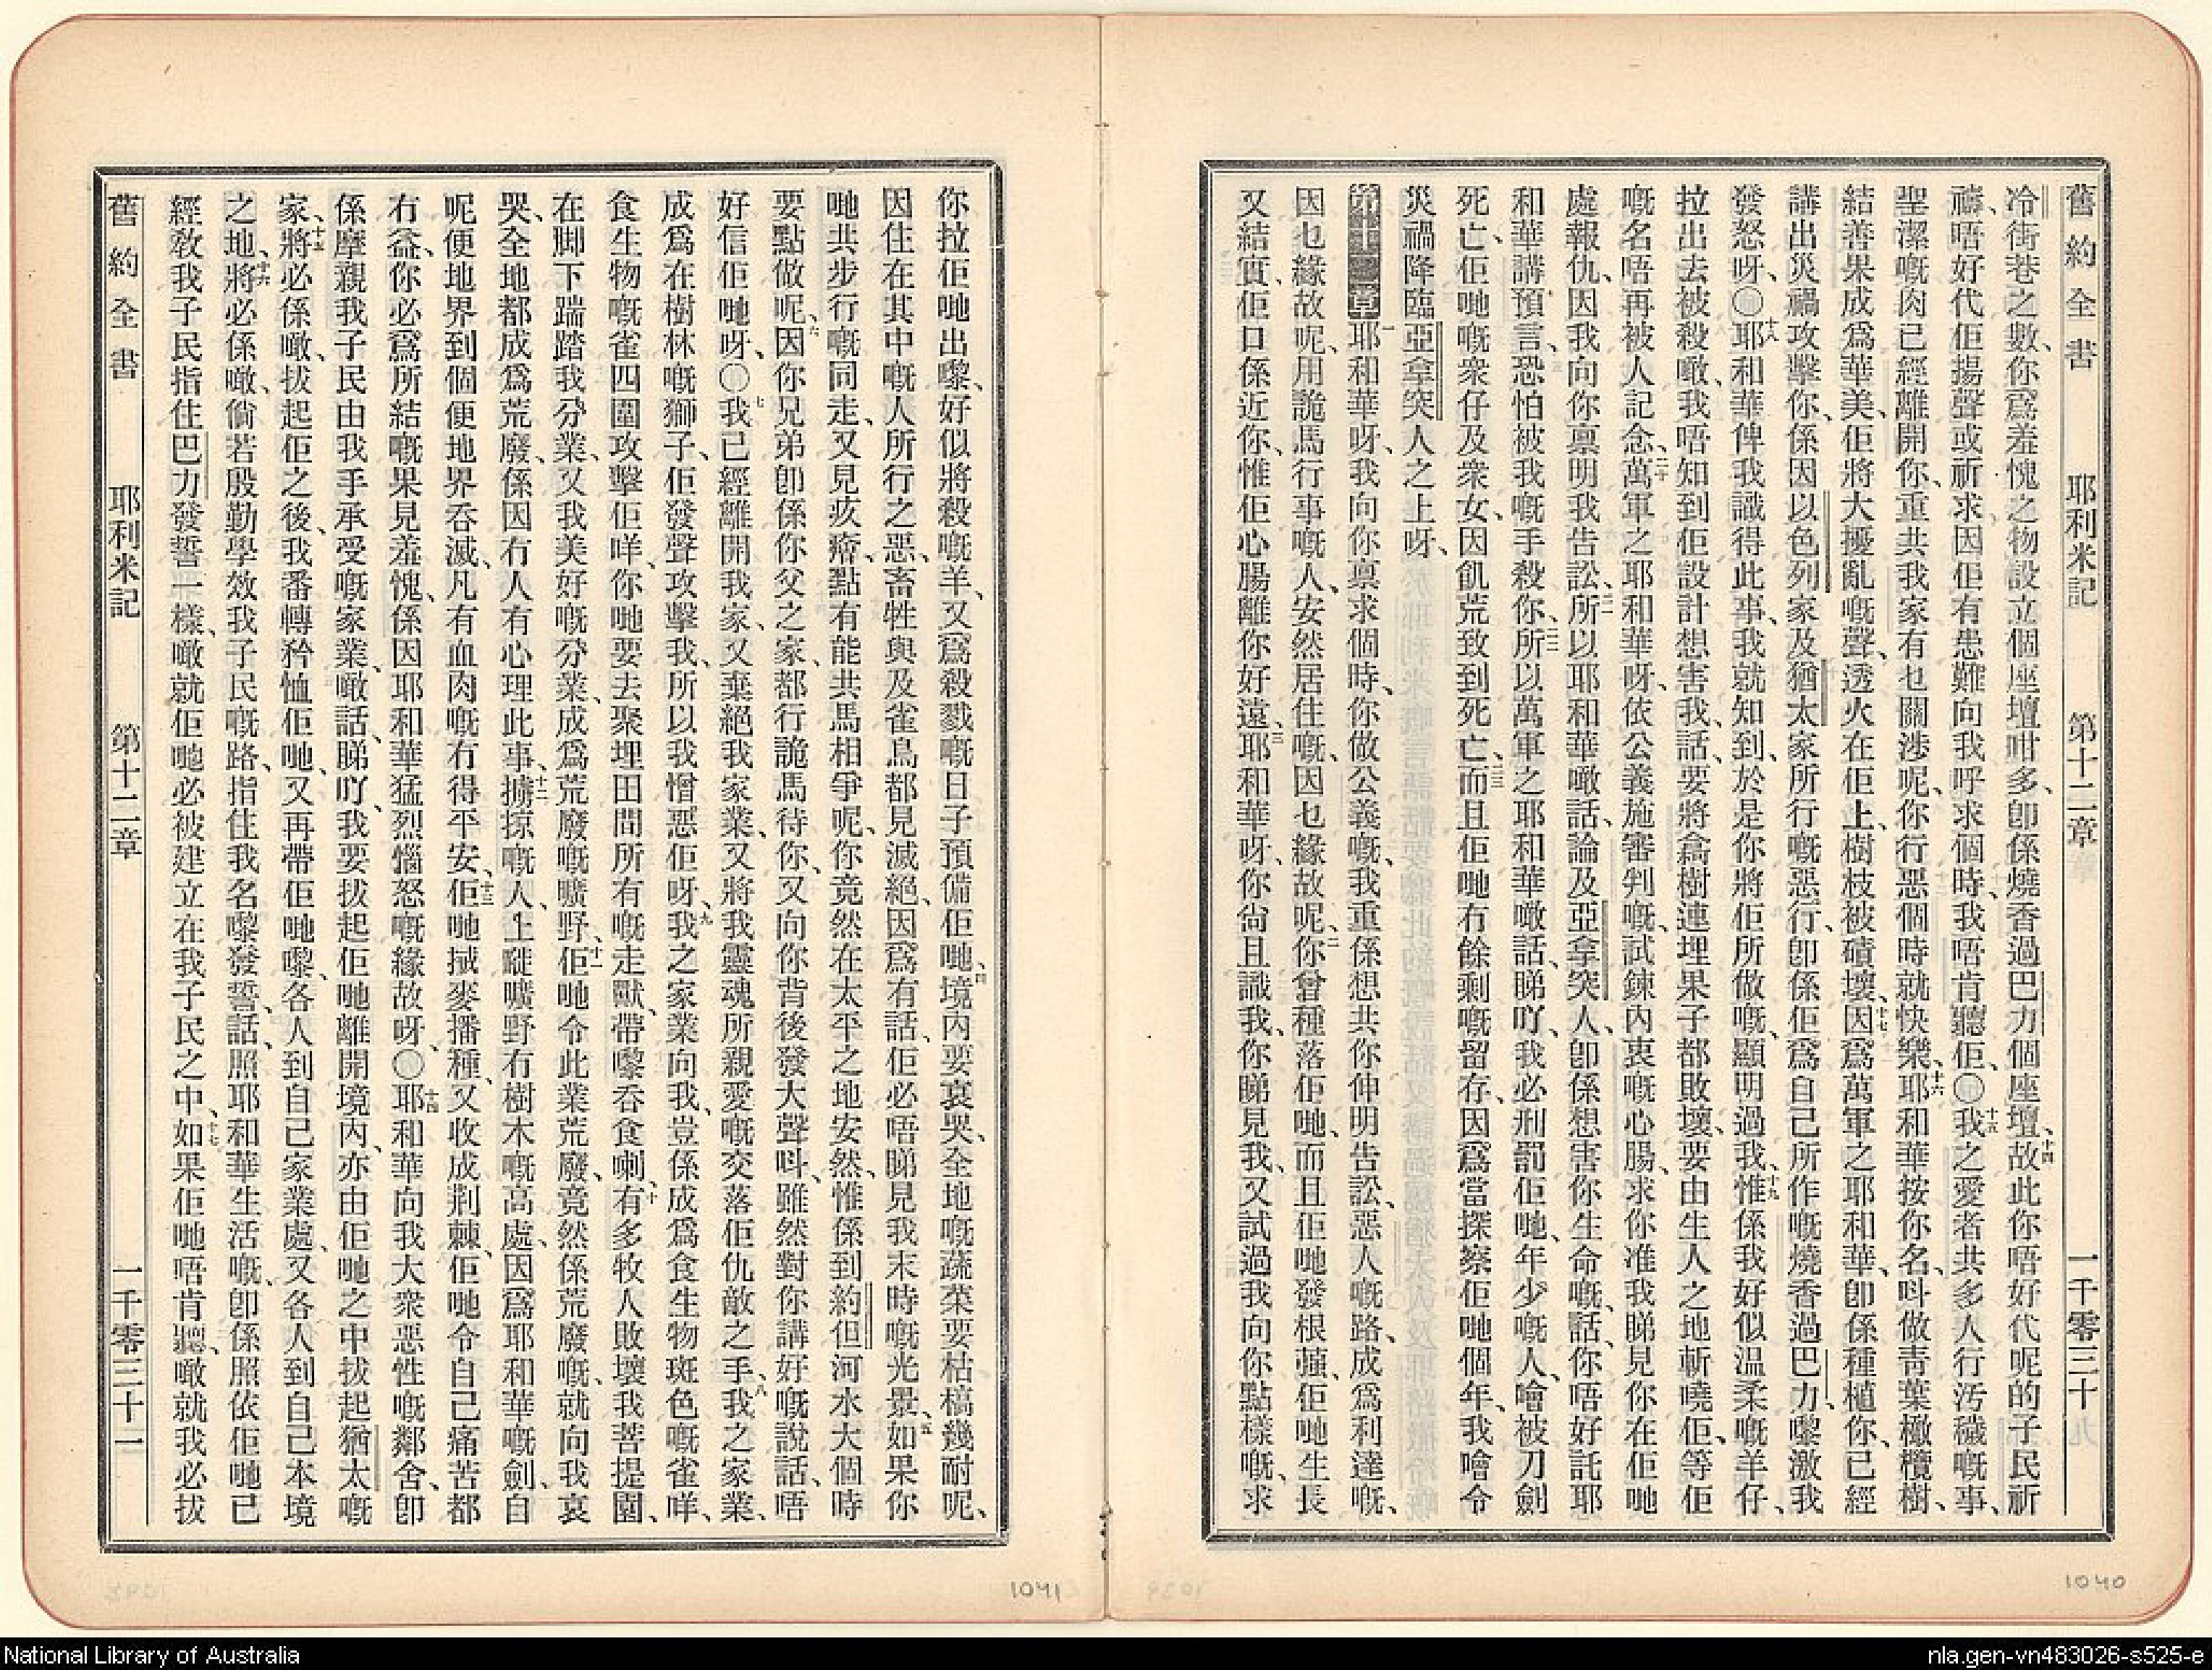 舊約全書 耶利米記 第十二章 一千零三十
冷街巷之數、你爲羞愧之物設立個座壇咁多、卽係燒香過巴力個座壇、十四故此你唔好代呢的子民祈
禱、唔好代佢揚聲或祈求、因佢有患難向我呼求個時、我唔肯聽佢、〇十五我之愛者共多人行汚穢嘅事、
聖潔嘅肉已經離開你、重共我家有乜關涉呢、你行惡個時就快樂、十六耶和華按你名、呌做靑葉橄欖樹、
結善果成爲華美、佢將大擾亂嘅聲、透火在佢上、樹枝被磧壞、十七因爲萬軍之耶和華、卽係種植你、已經
講出災禍攻擊你、係因以色列家及猶太家所行嘅惡行、卽係佢爲自己所作嘅燒香過巴力、嚟激我
發怒呀、〇十八耶和華俾我識得此事、我就知到、於是你將佢所做嘅、顯明過我、十九惟係我好似温柔嘅羊仔、
拉出去被殺噉、我唔知到佢設計想害我、話、要將樖樹連埋果子都敗壞、要由生人之地斬曉佢、等佢
嘅名唔再被人記念、二十萬軍之耶和華呀、依公義施審判嘅、試鍊內衷嘅心腸、求你准我睇見你在佢哋
處報仇、因我向你禀明我告訟、二一所以耶和華噉話、論及亞拿突人、卽係想害你生命嘅、話、你唔好託耶
和華講預言、恐怕被我嘅手殺你、二二所以萬軍之耶和華噉話、睇吖、我必刑罰佢哋、年少嘅人、噲被刀劍
死亡、佢哋嘅衆仔及衆女、因飢荒致到死亡、二三而且佢哋冇餘剩嘅留存、因爲當探察佢哋個年、我噲令
災禍降臨亞拿突人之上呀、
第十二章 一耶和華呀、我向你禀求個時、你做公義嘅、我重係想共你伸明告訟、惡人嘅路、成爲利達嘅、
因乜緣故呢、用詭馬行事嘅人、安然居住嘅、因乜緣故呢、二你曾種落佢哋、而且佢哋發根蔃、佢哋生長
又結實、佢口係近你、惟佢心腸離你好遠、三耶和華呀、你尙且識我、你睇見我、又試過我向你點樣嘅、求
1040
你拉佢哋出嚟、好似將殺嘅羊、又爲殺戮嘅日子預備佢哋、四境內要哀哭、全地嘅蔬菜要枯槁幾耐呢、
因住在其中嘅人所行之惡、畜牲與及雀鳥都見滅絕、因爲有話、佢必唔睇見我末時嘅光景、五如果你
哋共步行嘅同走、又見疚瘠、點有能共馬相爭呢、你竟然在太平之地安然、惟係到約但河水大個時
要點做呢、六因你兄弟卽係你父之家、都行詭馬待你、又向你背後發大聲呌、雖然對你講好嘅說話、唔
好信佢哋呀、〇七我已經離開我家、又棄絕我家業、又將我靈魂所親愛嘅交落佢仇敵之手、八我之家業、
成爲在樹林嘅獅子、佢發聲攻擊我、所以我憎惡佢呀、九我之家業向我、豈係成爲食生物斑色嘅雀咩、
食生物嘅雀四圍攻擊佢咩、你哋要去聚埋田間所有嘅走獸、帶嚟吞食喇、十有多牧人敗壞我菩提園、
在脚下踹踏我分業、又我美好嘅分業、成爲荒廢嘅曠野、十一佢哋令此業荒廢、竟然係荒廢嘅、就向我哀
哭、全地都成爲荒廢、係因冇人有心理此事、十二擄掠嘅人、上蹝曠野冇樹木嘅高處、因爲耶和華嘅劍、自
呢便地界到個便地界吞滅、凡有血肉嘅冇得平安、十三佢哋搣麥播種、又收成荆棘、佢哋令自己痛苦都
冇益、你必爲所結嘅果見羞愧、係因耶和華猛烈惱怒嘅緣故呀、〇十四耶和華向我大衆惡性嘅鄰舍、卽
係摩親我子民由我手承受嘅家業、噉話、睇吖、我要拔起佢哋離開境內、亦由佢哋之中拔起猶太嘅
家、十五將必係噉、拔起佢之後、我番轉矜恤佢哋、又再帶佢哋嚟、各人到自己家業處、又各人到自己本境
之地、十六將必係噉、倘若殷勤學效我子民嘅路、指住我名嚟發誓、話、照耶和華生活嘅、卽係照依佢哋已
經敎我子民指住巴力發誓一樣、噉就佢哋必被建立在我子民之中、十七如果佢哋唔肯聽、噉就我必拔
舊約全書 耶利米記 第十二章 一千零三十一
1041
National Library of Australia
nla.gen-vn483026-s525-e